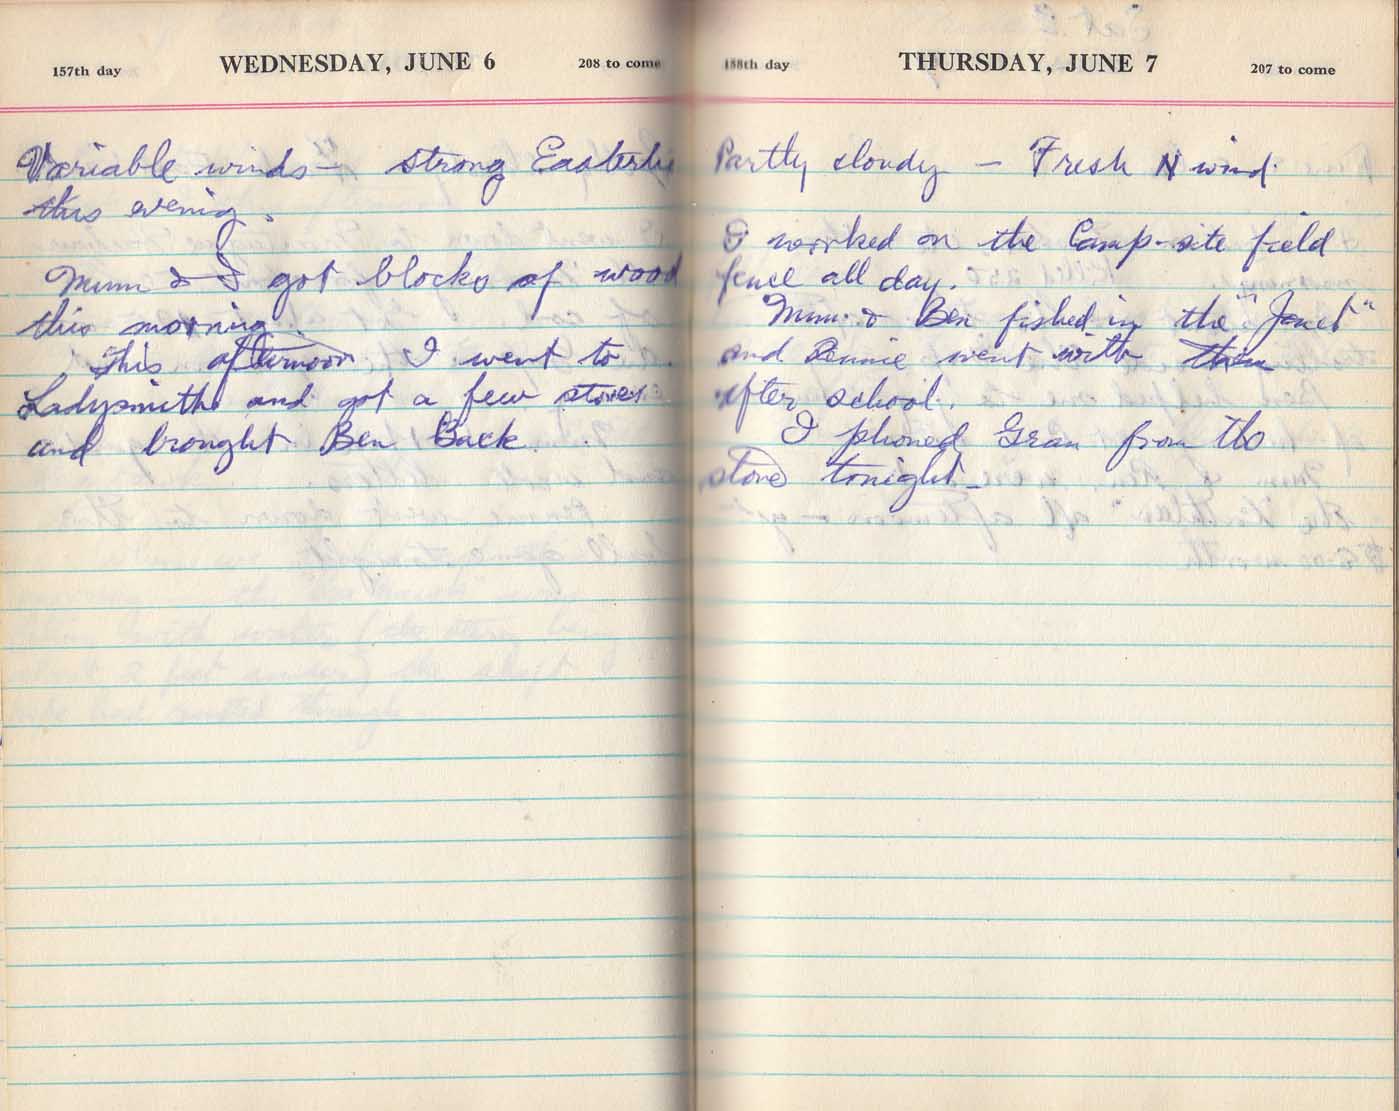 157th day WEDNESDAY, JUNE 6 208 to come
Variable winds - strong Easterly
this evening.
Mum & I got blocks of wood
this morning.
This afternoon I went to
Ladysmith and got a few stores
and brought Ben Back.
158th day THURSDAY, JUNE 7 207 to come
Partly cloudy - Fresh N wind
I worked on the Camp-site field
fence all day.
Mum & Ben fished in the "Janet"
and Bennie went with them
after school.
I phoned Gran from the
store tonight -